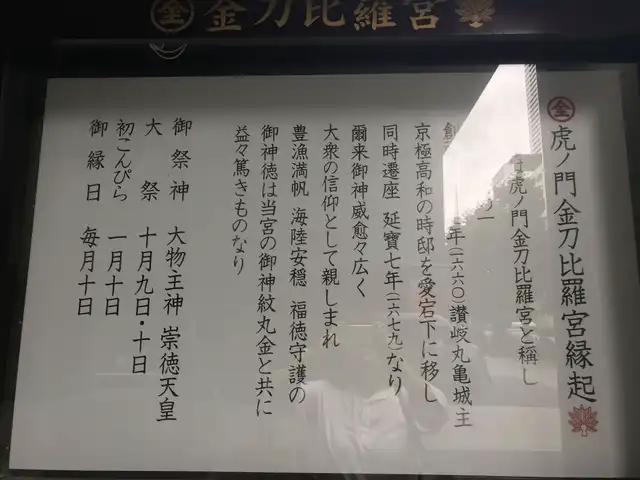 金 金刀比羅宮
金 虎ノ門金刀比羅宮縁起
虎ノ門金刀比羅宮と稱し
年(一六六〇)讃岐丸亀城主
京極高和の時邸を愛宕下に移し
同時遷座 延寶七年(一六七九)なり
爾来御神威愈々広く
大衆の信仰として親しまれ
豊漁満帆 海陸安穏 福徳守護の
御神徳は当宮の御神紋丸金と共に
益々篤きものなり
御祭神 大物主神 崇徳天皇
大祭 十月九日・十日
初こんぴら 一月十日
御縁日 毎月十日